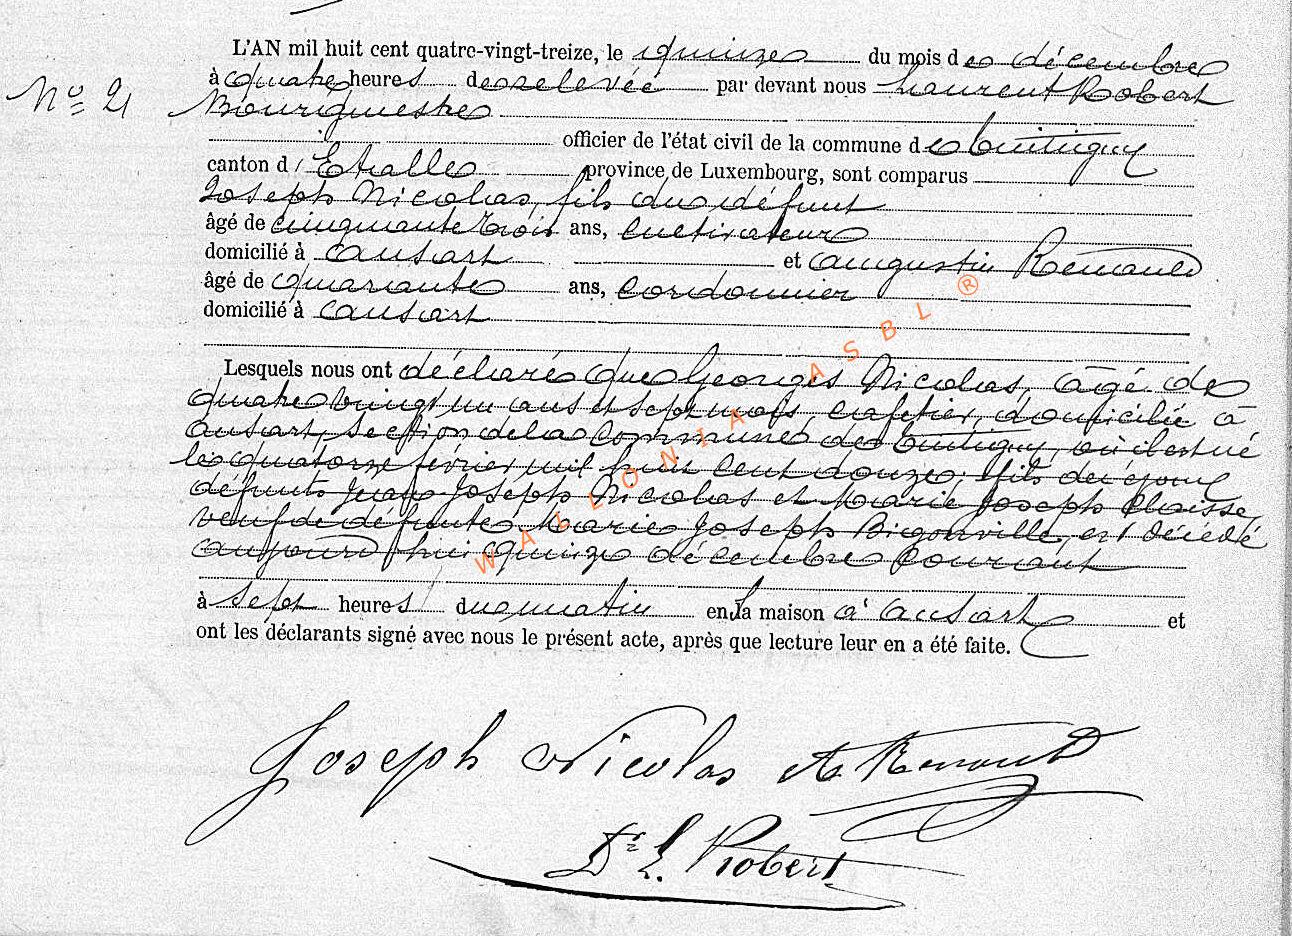 L'AN mil huit cent quatre-vingt-treize, le quinze du mois de décembre
à quatre heures de relevée par devant nous Laurent Robert
N° 21
Bourgmestre
officier de l'état civil de la commune de Tintigny
canton d' Etalle province de Luxembourg, sont comparus
Joseph Nicolas, fils du défunt
âgé de cinquante trois ans, cultivateur
domicilié à Ansart et Augustin Renauld
âgé de quarante ans, cordonnier
domicilié à Ansart
Lesquels nous ont déclaré que Georges Nicolas, âgé de
quatre vingt un ans et sept mois, cafetier, domicilié à
Ansart, section de la commune de Tintigny, où il est né
le quatorze février mil huit cent douze; fils des époux
défunts Jean Joseph Nicolas et Marie Joseph
veuf de défunte Marie Joseph Bigonville, est décédé
aujourd'hui quinze décembre courant
à sept heures du matin en la maison à Ansart et
ont les déclarants signé avec nous le présent acte, après que lecture leur en a été faite.
Joseph Nicolas A Renauld
Dr L. Robert
WALLONIA ASBL ®